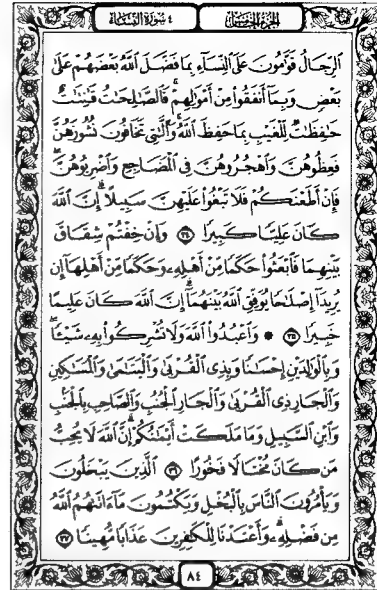 الجزء الخامس
٤ سورة النساء
الرِّجَالُ قَوَّٰمُونَ عَلَى النِّسَآءِ بِمَا فَضَّلَ اللَّهُ بَعْضَهُمْ عَلَىٰ
بَعْضٍ وَبِمَآ أَنفَقُوا۟ مِنْ أَمْوَٰلِهِمْ ۚ فَالصَّٰلِحَٰتُ قَٰنِتَٰتٌ
حَٰفِظَٰتٌ لِّلْغَيْبِ بِمَا حَفِظَ اللَّهُ ۚ وَالَّٰتِى تَخَافُونَ نُشُوزَهُنَّ
فَعِظُوهُنَّ وَاهْجُرُوهُنَّ فِى الْمَضَاجِعِ وَاضْرِبُوهُنَّ ۖ
فَإِنْ أَطَعْنَكُمْ فَلَا تَبْغُوا۟ عَلَيْهِنَّ سَبِيلًا ۗ إِنَّ اللَّهَ
كَانَ عَلِيًّا كَبِيرًا ٣٤ وَإِنْ خِفْتُمْ شِقَاقَ
بَيْنِهِمَا فَابْعَثُوا۟ حَكَمًا مِّنْ أَهْلِهِۦ وَحَكَمًا مِّنْ أَهْلِهَآ إِن
يُرِيدَآ إِصْلَٰحًا يُوَفِّقِ اللَّهُ بَيْنَهُمَآ ۗ إِنَّ اللَّهَ كَانَ عَلِيمًا
خَبِيرًا ٣٥ * وَاعْبُدُوا۟ اللَّهَ وَلَا تُشْرِكُوا۟ بِهِۦ شَيْـًٔا ۖ
وَبِالْوَٰلِدَيْنِ إِحْسَٰنًا وَبِذِى الْقُرْبَىٰ وَالْيَتَٰمَىٰ وَالْمَسَٰكِينِ
وَالْجَارِ ذِى الْقُرْبَىٰ وَالْجَارِ الْجُنُبِ وَالصَّاحِبِ بِالْجَنۢبِ
وَابْنِ السَّبِيلِ وَمَا مَلَكَتْ أَيْمَٰنُكُمْ ۗ إِنَّ اللَّهَ لَا يُحِبُّ
مَن كَانَ مُخْتَالًا فَخُورًا ٣٦ الَّذِينَ يَبْخَلُونَ
وَيَأْمُرُونَ النَّاسَ بِالْبُخْلِ وَيَكْتُمُونَ مَآ ءَاتَىٰهُمُ اللَّهُ
مِن فَضْلِهِۦ ۗ وَأَعْتَدْنَا لِلْكَٰفِرِينَ عَذَابًا مُّهِينًا ٣٧
٨٤